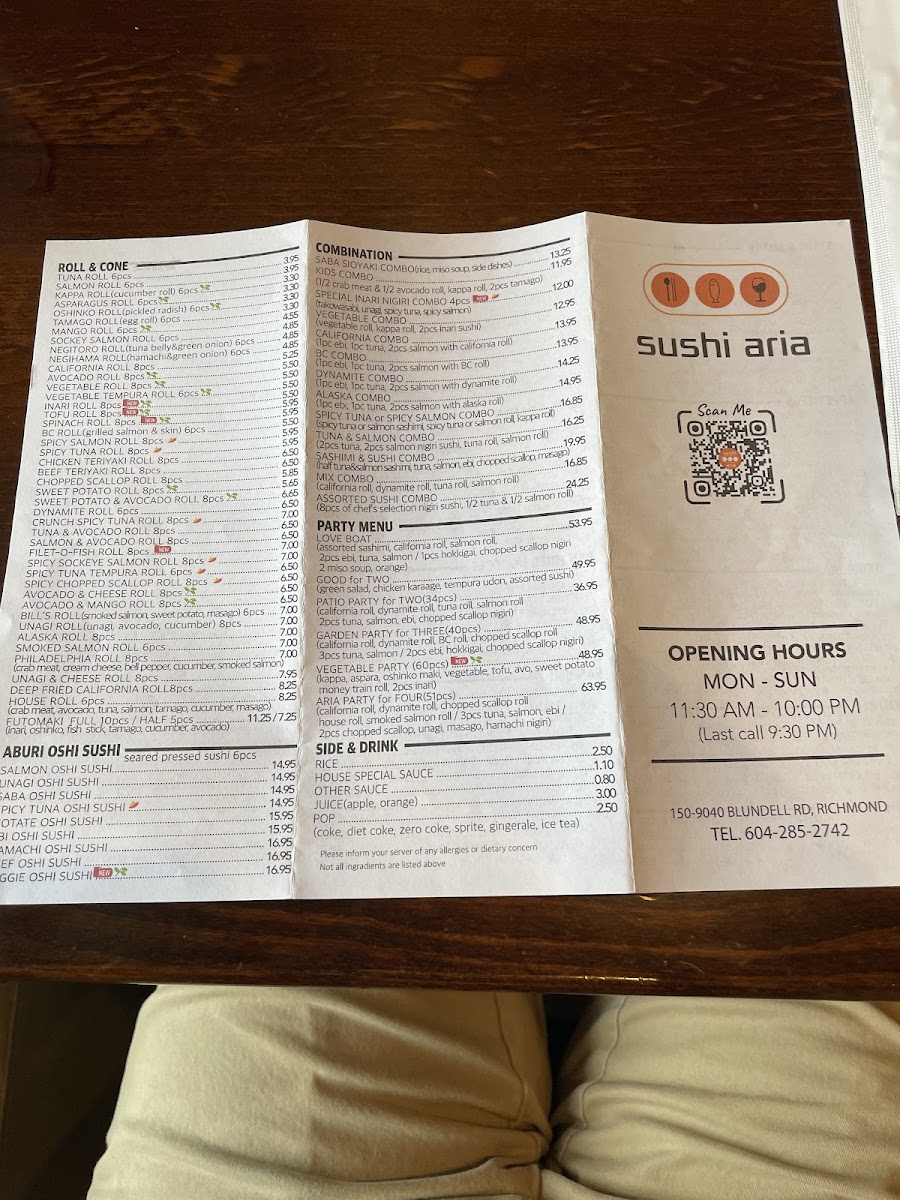 ROLL & CONE
TUNA ROLL 6pcs 3.95
SALMON ROLL 6pcs 3.95
KAPPA ROLL(cucumber roll) 6pcs 3.30
ASPARAGUS ROLL 6pcs 3.30
OSHINKO ROLL(pickled radish) 6pcs 3.30
TAMAGO ROLL(egg roll) 6pcs 4.55
MANGO ROLL 6pcs 4.85
SOCKEY SALMON ROLL 6pcs 4.85
NEGITORO ROLL(tuna belly&green onion) 6pcs 4.85
NEGIHAMA ROLL(hamachi&green onion) 6pcs 5.25
CALIFORNIA ROLL 8pcs 5.50
AVOCADO ROLL 8pcs 5.50
VEGETABLE ROLL 8pcs 5.50
VEGETABLE TEMPURA ROLL 6pcs 5.50
INARI ROLL 8pcs NEW 5.95
TOFU ROLL 8pcs NEW 5.95
SPINACH ROLL 8pcs NEW 5.95
BC ROLL(grilled salmon & skin) 6pcs 5.95
SPICY SALMON ROLL 8pcs 5.95
SPICY TUNA ROLL 8pcs 5.95
CHICKEN TERIYAKI ROLL 8pcs 6.50
BEEF TERIYAKI ROLL 8pcs 6.50
CHOPPED SCALLOP ROLL 8pcs 5.85
SWEET POTATO ROLL 8pcs 5.65
SWEET POTATO & AVOCADO ROLL 8pcs 6.65
DYNAMITE ROLL 6pcs 6.50
CRUNCH SPICY TUNA ROLL 8pcs 7.00
TUNA & AVOCADO ROLL 8pcs 6.50
SALMON & AVOCADO ROLL 8pcs 6.50
FILET-O-FISH ROLL 8pcs NEW 7.00
SPICY SOCKEYE SALMON ROLL 8pcs 7.00
SPICY TUNA TEMPURA ROLL 6pcs 6.50
SPICY CHOPPED SCALLOP ROLL 8pcs 6.50
AVOCADO & CHEESE ROLL 8pcs 6.50
AVOCADO & MANGO ROLL 8pcs 6.50
BILL'S ROLL(smoked salmon, sweet potato, masago) 6pcs 7.00
UNAGI ROLL(unagi, avocado, cucumber) 8pcs 7.00
ALASKA ROLL 8pcs 7.00
SMOKED SALMON ROLL 6pcs 7.00
PHILADELPHIA ROLL 8pcs 7.00
(crab meat, cream cheese, bell pepper, cucumber, smoked salmon)
UNAGI & CHEESE ROLL 8pcs 7.95
DEEP FRIED CALIFORNIA ROLL8pcs 8.25
HOUSE ROLL 6pcs 8.25
(crab meat, avocado, tuna, salmon, tamago, cucumber, masago)
FUTOMAKI FULL 10pcs / HALF 5pcs 11.25 / 7.25
(inari, oshinko, fish stick, tamago, cucumber, avocado)
ABURI OSHI SUSHI seared pressed sushi 6pcs
SALMON OSHI SUSHI 14.95
UNAGI OSHI SUSHI 14.95
SABA OSHI SUSHI 14.95
SPICY TUNA OSHI SUSHI 14.95
OTATE OSHI SUSHI 15.95
BI OSHI SUSHI 15.95
AMACHI OSHI SUSHI 16.95
EF OSHI SUSHI 16.95
GGIE OSHI SUSHI NEW 16.95
COMBINATION
SABA SIOYAKI COMBO(rice, miso soup, side dishes) 13.25
KIDS COMBO 11.95
(1/2 crab meat & 1/2 avocado roll, kappa roll, 2pcs tamago)
SPECIAL INARI NIGIRI COMBO 4pcs NEW 12.00
(takowasabi, unagi, spicy tuna, spicy salmon)
VEGETABLE COMBO 12.95
(vegetable roll, kappa roll, 2pcs inari sushi)
CALIFORNIA COMBO 13.95
(1pc ebi, 1pc tuna, 2pcs salmon with california roll)
BC COMBO 13.95
(1pc ebi, 1pc tuna, 2pcs salmon with BC roll)
DYNAMITE COMBO 14.25
(1pc ebi, 1pc tuna, 2pcs salmon with dynamite roll)
ALASKA COMBO 14.95
(1pc ebi, 1pc tuna, 2pcs salmon with alaska roll)
SPICY TUNA or SPICY SALMON COMBO 16.85
(spicy tuna or salmon sashimi, spicy tuna or salmon roll, kappa roll)
TUNA & SALMON COMBO 16.25
(2pcs tuna, 2pcs salmon nigiri sushi, tuna roll, salmon roll)
SASHIMI & SUSHI COMBO 19.95
(half tuna&salmon sashimi, tuna, salmon, ebi, chopped scallop, masago)
MIX COMBO 16.85
(california roll, dynamite roll, tuna roll, salmon roll)
ASSORTED SUSHI COMBO 24.25
(8pcs of chef's selection nigiri sushi, 1/2 tuna & 1/2 salmon roll)
PARTY MENU
LOVE BOAT 53.95
(assorted sashimi, california roll, salmon roll,
2pcs ebi, tuna, salmon / 1pcs hokkigai, chopped scallop nigiri
2 miso soup, orange)
GOOD for TWO 49.95
(green salad, chicken karaage, tempura udon, assorted sushi)
PATIO PARTY for TWO(34pcs) 36.95
(california roll, dynamite roll, tuna roll, salmon roll
2pcs tuna, salmon, ebi, chopped scallop nigiri)
GARDEN PARTY for THREE(40pcs) 48.95
(california roll, dynamite roll, BC roll, chopped scallop roll
3pcs tuna, salmon / 2pcs ebi, hokkigai, chopped scallop nigiri)
VEGETABLE PARTY (60pcs) NEW 48.95
(kappa, aspara, oshinko maki, vegetable, tofu, avo, sweet potato
money train roll, 2pcs inari)
ARIA PARTY for FOUR(51pcs) 63.95
(california roll, dynamite roll, chopped scallop roll
house roll, smoked salmon roll / 3pcs tuna, salmon, ebi /
2pcs chopped scallop, unagi, masago, hamachi nigiri)
SIDE & DRINK
RICE 2.50
HOUSE SPECIAL SAUCE 1.10
OTHER SAUCE 0.80
JUICE(apple, orange) 3.00
POP 2.50
(coke, diet coke, zero coke, sprite, gingerale, ice tea)
Please inform your server of any allergies or dietary concern
Not all ingredients are listed above
sushi aria
Scan Me
OPENING HOURS
MON - SUN
11:30 AM - 10:00 PM
(Last call 9:30 PM)
150-9040 BLUNDELL RD, RICHMOND
TEL. 604-285-2742